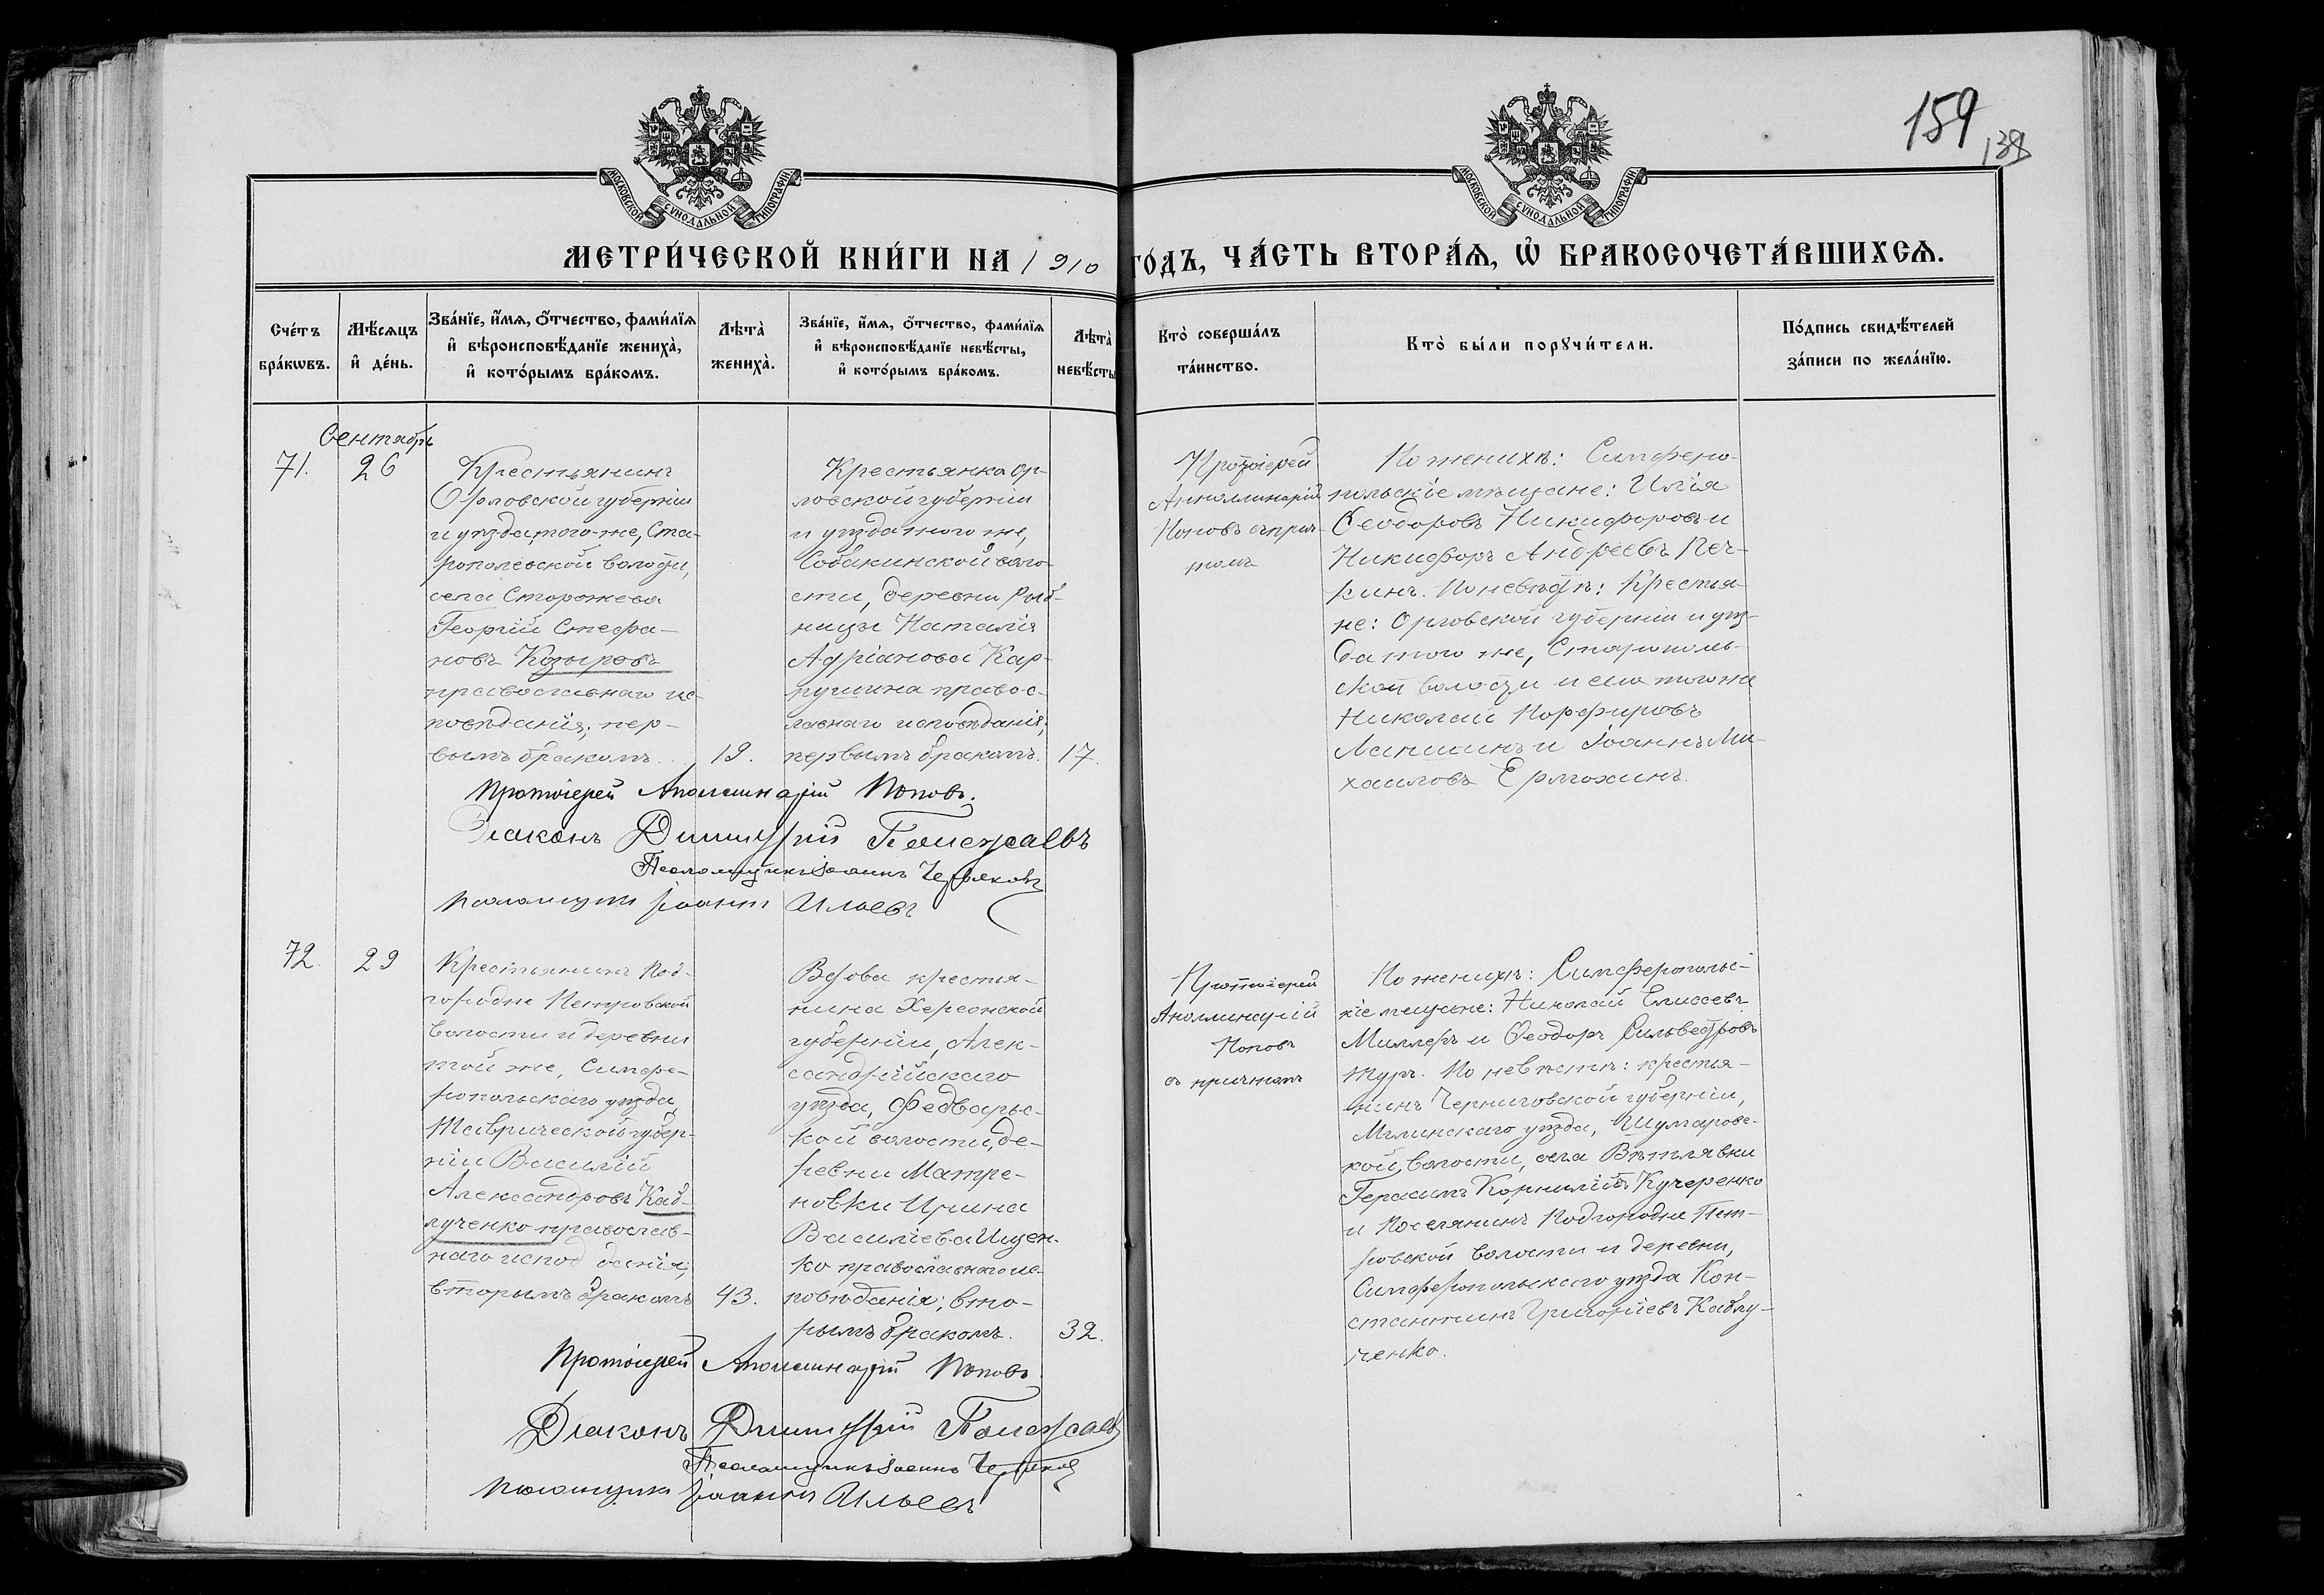 159
138
МОСКОВСКОЙ СѴНОДАЛЬНОЙ ТИПОГРАФІИ
МОСКОВСКОЙ СѴНОДАЛЬНОЙ ТИПОГРАФІИ
МЕТРИ́ЧЕСКОЙ КНИ́ГИ НА 1910 ГО́ДЪ, ЧА́СТЬ ВТОРА́Ѧ, Ѽ БРАКОСОЧЕТА́ВШИХСѦ.
Сче́тъ
бра́кѡвъ.
Мѣ́сѧцъ
и҆ де́нь.
Зва́нїе, и҆́мѧ, ѻ҆́тчество, фами́лїѧ
и҆ вѣроисповѣ́данїе жениха̀,
и҆ кото́рымъ бра́комъ.
Лѣта̀
жениха̀.
Зва́нїе, и҆́мѧ, ѻ҆́тчество, фами́лїѧ
и҆ вѣроисповѣ́данїе невѣ́сты,
и҆ кото́рымъ бра́комъ.
Лѣта̀
невѣ́сты
Кто̀ соверша́лъ
та́инство.
Кто̀ бы́ли порꙋчи́тели.
По́дпись свидѣ́телей
за́писи по жела́нїю.
Сентябрь
71.
26
Крестьянинъ
Орловской губерніи
и уѣзда, того-же, Ста-
ропольской волости,
села Сторожева
Георгій Стефа-
новъ Козыревъ
православнаго ис-
повѣданія; пер-
вымъ бракомъ.
19.
Крестьянка Ор-
ловской губерніи
и уѣзда того же,
Собакинской воло-
сти, деревни Рыб-
ницы Наталія
Адріанова Кар-
пушина правос-
лавнаго исповѣданія;
первымъ бракомъ.
17.
Протоіерей
Аполлинарій
Поповъ съ прич-
томъ
По женихѣ: Симферо-
польскіе мѣщане: Илія
Ѳеодоровъ Никифоровъ и
Никифоръ Андреевъ Печ-
кинъ. По невѣстѣ: Крестья-
не: Орловской губерніи и уѣз-
да того же, Старополь-
ской волости и села того же
Николай Порфировъ
Лапшинъ и Іоаннъ Ми-
хаиловъ Ермохинъ.
Протоіерей Аполлинарій Поповъ.
Діаконъ Димитрій
Псаломщикъ Іоаннъ Черняковъ
Псаломщикъ Іоаннъ Ильевъ
72.
29
Крестьянинъ Под-
городне Петровской
волости и деревни
той же, Симфе-
ропольскаго уѣзда,
Таврической губер-
ніи Василій
Александровъ Каб-
лученко православ-
наго исповѣданія;
вторымъ бракомъ
43.
Вдова крестья-
нина Херсонской
губерніи, Алек-
сандрійскаго
уѣзда, Федварьс-
кой волости, де-
ревни Матре-
новки Ирина
Василіева Ищен-
ко православнаго ис-
повѣданія; вто-
рымъ бракомъ.
32.
Протоіерей
Аполлинарій
Поповъ
съ причтомъ
По женихѣ: Симферопольс-
кіе мѣщане: Николай Елисеевъ
Миллеръ и Ѳеодоръ Сильвестровъ
Туръ. По невѣстѣ: крестья-
нинъ Черниговской губерніи,
Мглинскаго уѣзда, Шумаровс-
кой волости, села Вѣтлявки
Герасимъ Корниліевъ Кучеренко
и Поселянинъ Подгородне Пет-
ровской волости и деревни,
Симферопольскаго уѣзда Кон-
стантинъ Григоріевъ Каблу-
ченко.
Протоіерей Аполлинарій Поповъ
Діаконъ Димитрій
Псаломщикъ Іоаннъ Черняковъ
Псаломщикъ Іоаннъ Ильевъ